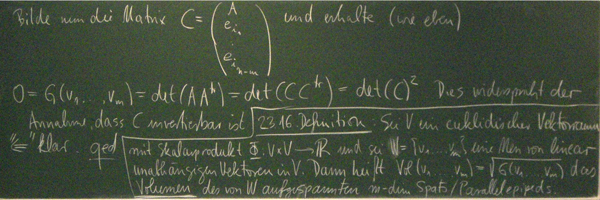 Bilde nun die Matrix C = ( A e_{i_1} ⋮ e_{i_{n-m}} ) und erhalte (wie eben)
0 = G(v_1, ..., v_m) = det(A A^{tr}) = det(C C^{tr}) = det(C)^2 Dies widerspricht der
Annahme, dass C invertierbar ist
"⇐" klar. qed
23.16. Definition: Sei V ein euklidischer Vektorraum
mit Skalarprodukt Φ: V×V → ℝ und sei W = {v_1 ... v_m} eine Men von linear
unabhängigen Vektoren in V. Dann heißt Vol(v_1 ... v_m) = √G(v_1 ... v_m) das
Volumen des von W aufgespannten m-dim Spats/Parallelepipeds.